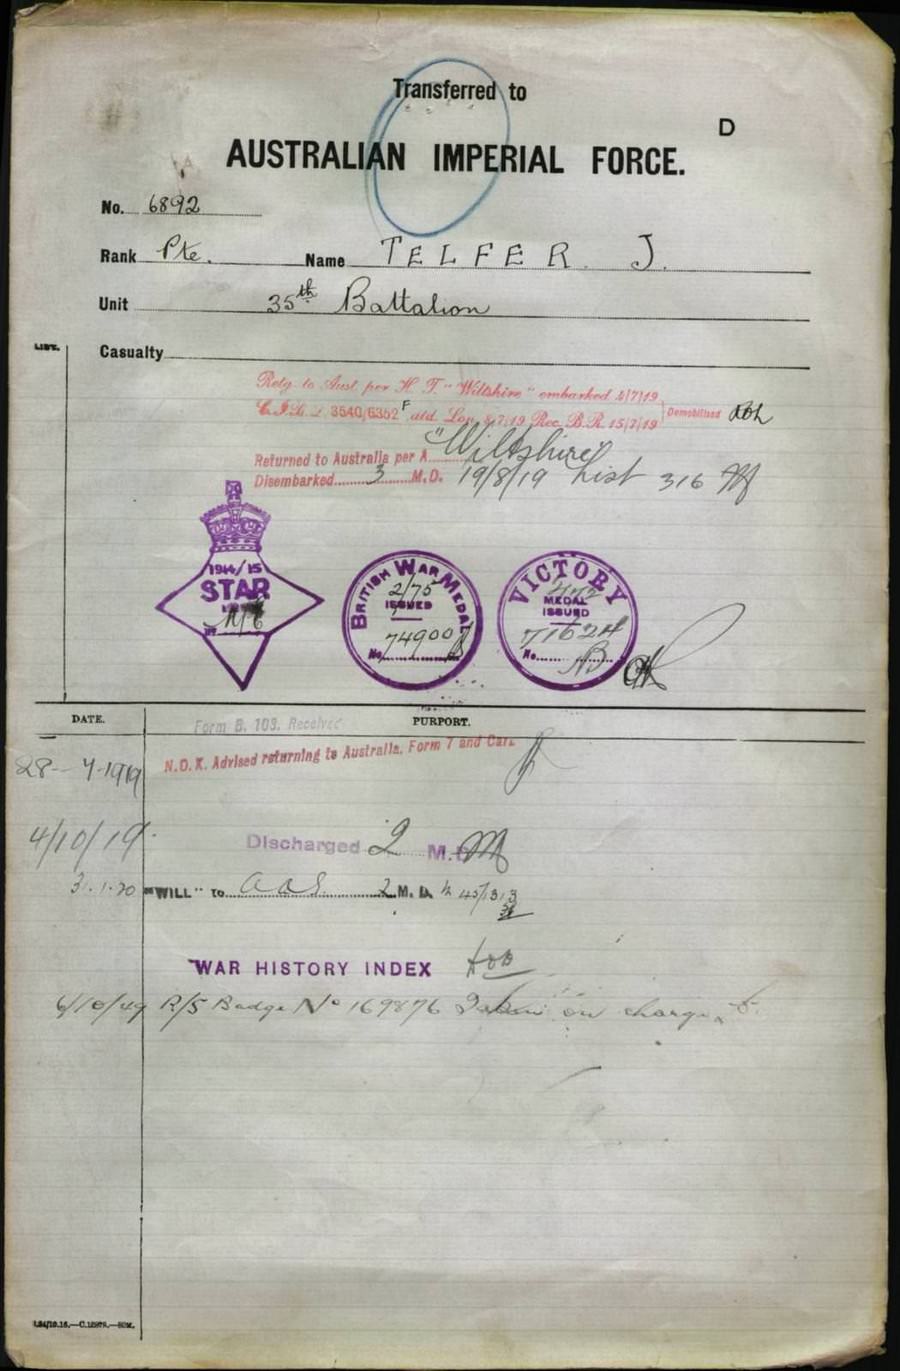 Transferred to
D
AUSTRALIAN IMPERIAL FORCE.
No. 6892
Rank Pte. Name TELFER. J.
Unit 35th Battalion
LIST.
Casualty
Retg. to Aust. per H. T. "Wiltshire" embarked /7/19
3540/6352 F Lon. 8/7/19 Rec. B.R. 15/7/19 Demobilised
Returned to Australia per A "Wiltshire"
Disembarked 3 M.D. 19/8/19 List 316
1914/15
STAR
BRITISH WAR MEDAL
2/75
ISSUED
No. 74900
VICTORY
MEDAL
ISSUED
No. 71624
DATE. PURPORT.
Form B. 103. Received
28-7-1919 N.O.K. Advised returning to Australia. Form 7 and Card
4/10/19. Discharged 2 M.D.
31.1.20 "WILL" to 2 M.D. 45/13
WAR HISTORY INDEX
6/10/49 R/S Badge No 169876 Taken on charge.